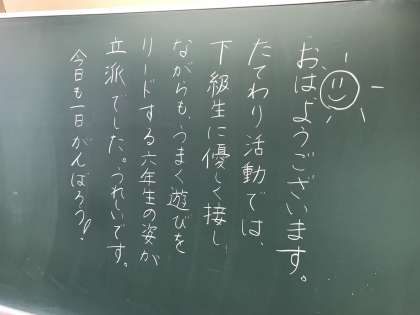 おはようございます。
たてわり活動では、
下級生に優しく接し
ながらも、うまく遊びを
リードする六年生の姿が
立派でした。うれしいです。
今日も一日がんばろう!